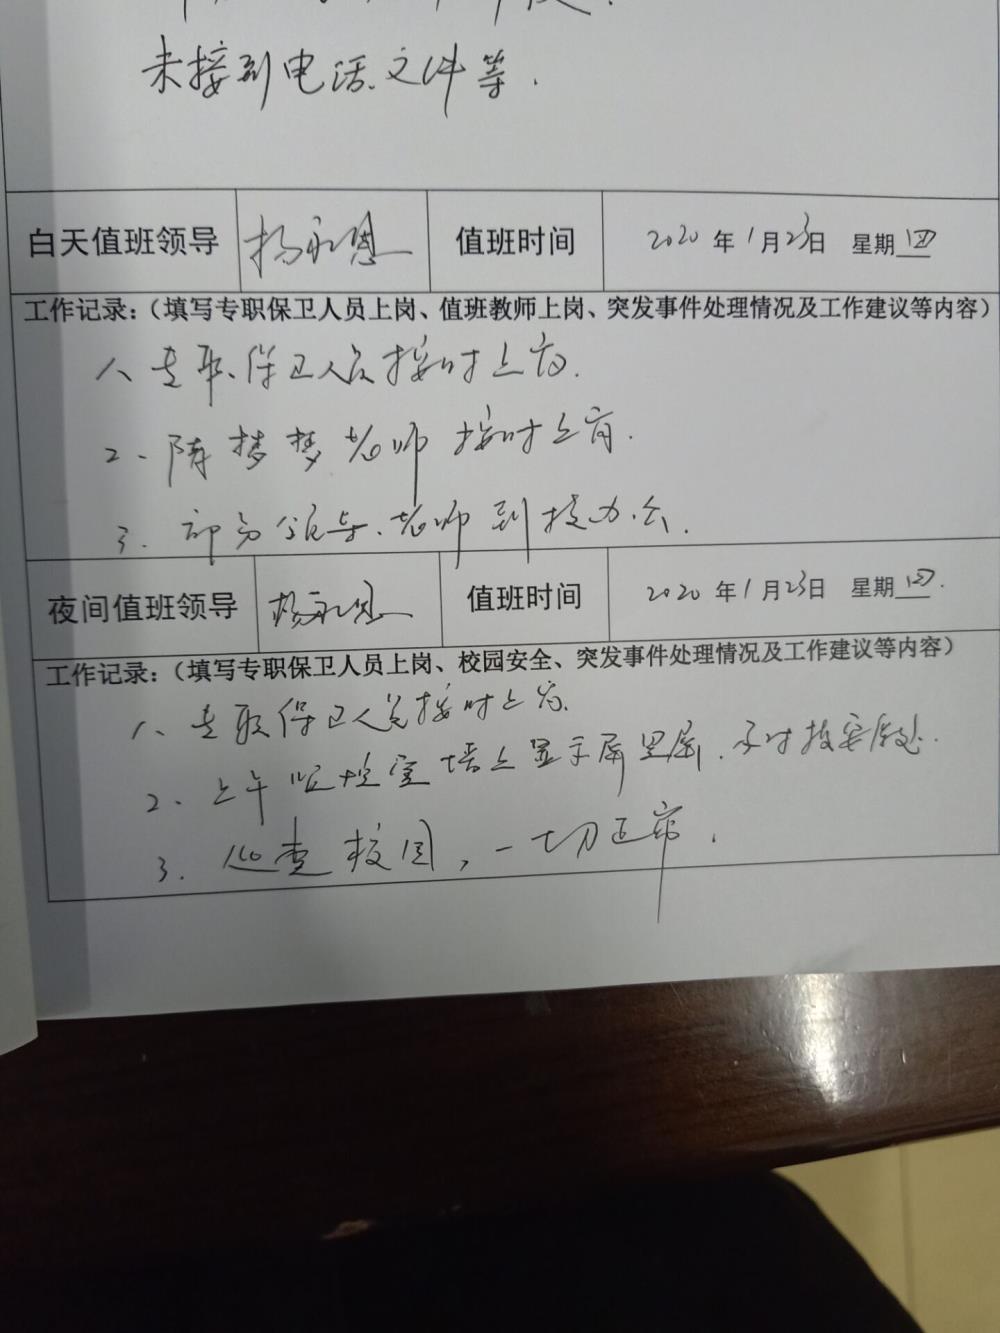 未接到电话、文件等.
白天值班领导 杨永恩 值班时间 2020 年 1 月 23 日 星期 四
工作记录：（填写专职保卫人员上岗、值班教师上岗、突发事件处理情况及工作建议等内容）
1、专职保卫人员按时上岗.
2、陈梦梦老师按时上岗.
3. 部分领导、老师到校办公.
夜间值班领导 杨永恩 值班时间 2020 年 1 月 23 日 星期 四.
工作记录：（填写专职保卫人员上岗、校园安全、突发事件处理情况及工作建议等内容）
1、专职保卫人员按时上岗.
2、上午监控室墙上显示屏黑屏.
3. 巡查校园，一切正常.